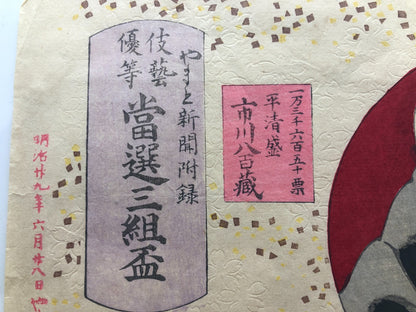 一万三千六百五十票
平清盛
市川八百藏
やまと新聞附録
伎藝
優等
當選三組盃
明治廿九年六月廿八日